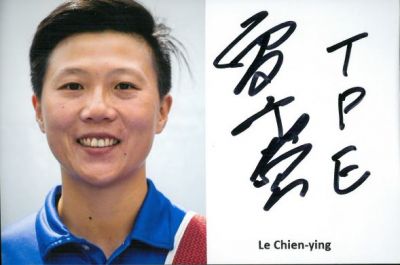 雷千瑩
TPE
Le Chien-ying